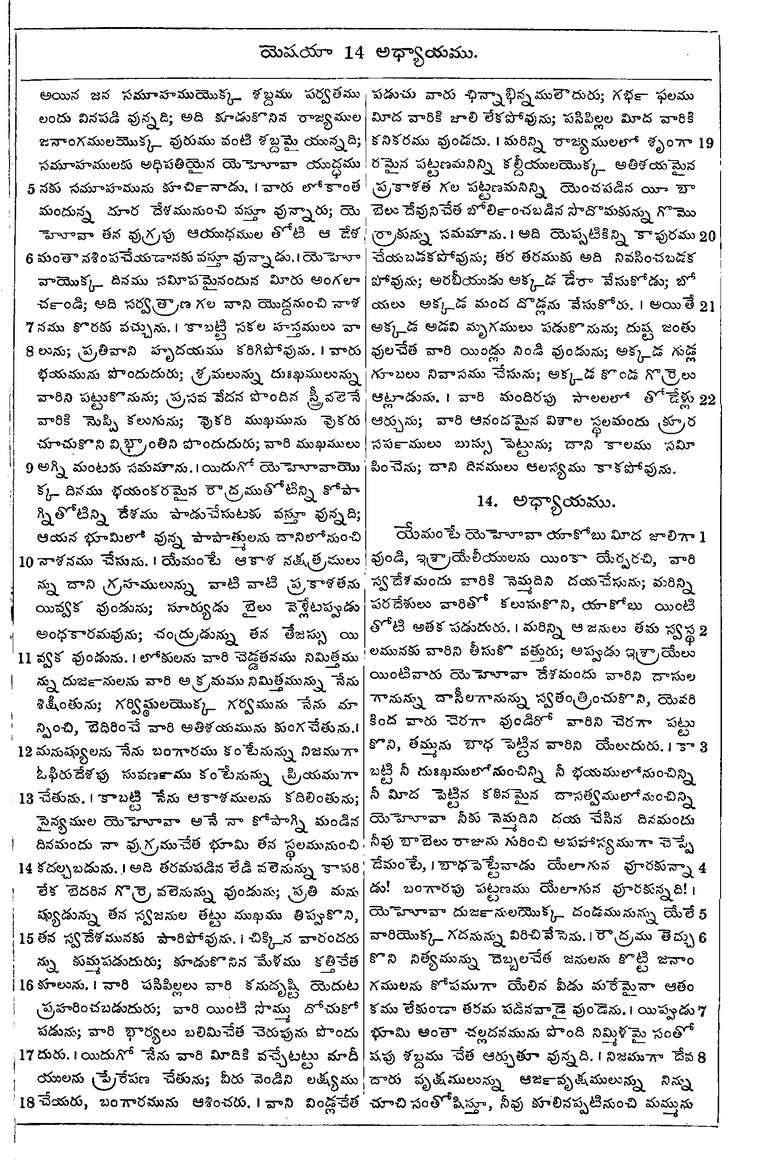 యెషయా 14 అధ్యాయము.
అయిన జన సమూహముయొక్క శబ్దము పర్వతము
లందు వినపడి వున్నది; అది కూడుకొనిన రాజ్యముల
జనాంగములయొక్క వురుము వంటి శబ్దమై యున్నది;
సమూహములకు అధిపతియైన యెహోవా యుద్ధము
5 నకు సమూహమును కూర్చినాడు. । వారు లోకాంత
మందున్న దూర దేశమునుంచి వస్తూ వున్నారు; యె
హోవా తన వుగ్రపు ఆయుధముల తోటి ఆ దేశ
6 మంతా నశింపచేయడానకు వస్తూ వున్నాడు. । యెహో
వాయొక్క దినము సమీపమైనందున మీరు అంగలా
ర్చండి; అది సర్వత్రాణ గల వాని యొద్దనుంచి నాశ
7 నము కొరకు వచ్చును. । కాబట్టి సకల హస్తములు వా
8 లును; ప్రతివాని హృదయము కరిగిపోవును. । వారు
భయమును పొందుదురు; శ్రమలున్ను దుఃఖములున్ను
వారిని పట్టుకొనును; ప్రసవ వేదన పొందిన స్త్రీవలెనె
వారికి నొప్పి కలుగును; వొకరి ముఖమును వొకరు
చూచుకొని విభ్రాంతిని పొందుదురు; వారి ముఖములు
9 అగ్ని మంటకు సమమౌను. । యిదుగో యెహోవాయొ
క్క దినము భయంకరమైన రౌద్రముతోటిన్ని కోపా
గ్నితోటిన్ని దేశము పాడుచేసుటకు వస్తూ వున్నది;
ఆయన భూమిలో వున్న పాపాత్ములను దానిలోనుంచి
10 నాశనము చేసును. । యేమంటే ఆకాశ నక్షత్రములు
న్ను దాని గ్రహములున్ను వాటి వాటి ప్రకాశతను
యివ్వక వుండును; సూర్యుడు బైలు వెళ్లేటప్పుడు
అంధకారమవును; చంద్రుడున్ను తన తేజస్సు యి
11 వ్వక వుండును. । లోకులను వారి చెడ్డతనము నిమిత్తము
న్ను దుర్జనులను వారి అక్రమము నిమిత్తమున్ను నేను
శిక్షింతును; గర్విష్ఠులయొక్క గర్వమును నేను మా
న్పించి, బెదిరించే వారి అతిశయమును కుంగచేతును. ।
12 మనుష్యులను నేను బంగారము కంటేనున్ను నిజముగా
ఓఫిరుదేశపు సువర్ణము కంటేనున్ను ప్రియముగా
13 చేతును. । కాబట్టి నేను ఆకాశములను కదిలింతును;
సైన్యముల యెహోవా అనే నా కోపాగ్ని మండిన
దినమందు నా వుగ్రముచేత భూమి తన స్థలమునుంచి
14 కదల్చబడును. । అది తరమపడిన లేడి వలెనున్ను కాపరి
లేక బెదరిన గొర్రె వలెనున్ను వుండును; ప్రతి మను
ష్యుడున్ను తన స్వజనుల తట్టు ముఖము తిప్పుకొని,
15 తన స్వదేశమునకు పారిపోవును. । చిక్కిన వారందరు
న్ను కుమ్మపడుదురు; కూడుకొనిన మేళము కత్తిచేత
16 కూలును. । వారి పసిపిల్లలు వారి కనుదృష్టి యెదుట
ప్రహరించబడుదురు; వారి యింటి సొమ్ము దోచుకో
పడును; వారి భార్యలు బలిమిచేత చెరుపును పొందు
17 దురు. । యిదుగో నేను వారి మీదికి వచ్చేటట్టు మాదీ
యులను ప్రేరేపణ చేతును; వీరు వెండిని లక్ష్యము
18 చేయరు, బంగారమును ఆశించరు. । వాని విండ్లచేత
పడుచు వారు ఛిన్నాభిన్నములౌదురు; గర్భ ఫలము
మీద వారికి జాలి లేకపోవును; పసిపిల్లల మీద వారికి
కనికరము వుండదు. । మరిన్ని రాజ్యములలో శృంగా 19
రమైన పట్టణమనిన్ని కల్దీయులయొక్క అతిశయమైన
ప్రకాశత గల పట్టణమనిన్ని యెంచపడిన యీ బా
బెలు దేవునిచేత బోర్లించబడిన సొదొమకున్ను గొమొ
ర్రాకున్ను సమమౌను. । అది యెప్పటికిన్ని కాపురము 20
చేయబడకపోవును; తర తరముకు అది నివసించబడక
పోవును; అరబీయుడు అక్కడ డేరా వేసుకోడు; బో
యలు అక్కడ మంద దొడ్లను వేసుకోరు. । అయితే 21
అక్కడ అడవి మృగములు పడుకొనును; దుష్ట జంతు
వులచేత వారి యిండ్లు నిండి వుండును; అక్కడ గుడ్ల
గూబలు నివాసము చేసును; అక్కడ కొండ గొర్రెలు
ఆట్లాడును. । వారి మందిరపు సాలలలో తోడేళ్లు 22
ఆర్చును; వారి ఆనందమైన విశాల స్థలమందు క్రూర
సర్పములు బుస్సు పెట్టును; దాని కాలము సమీ
పించెను; దాని దినములు ఆలస్యము కాకపోవును.
14. అధ్యాయము.
యేమంటే యెహోవా యాకోబు మీద జాలిగా 1
వుండి, ఇశ్రాయేలీయులను యింకా యేర్పరచి, వారి
స్వదేశమందు వారికి నెమ్మదిని దయచేసును; మరిన్ని
పరదేశులు వారితో కలుసుకొని, యాకోబు యింటి
తోటి అతక పడుదురు. । మరిన్ని ఆ జనులు తమ స్వస్థ 2
లమునకు వారిని తీసుకొ వత్తురు; అప్పుడు ఇశ్రాయేలు
యింటివారు యెహోవా దేశమందు వారిని దాసుల
గానున్ను దాసీలగానున్ను స్వతంత్రించుకొని, యెవరి
కింద వారు చెరగా వుండిరో వారిని చెరగా పట్టు
కొని, తమ్మును బాధ పెట్టిన వారిని యేలుదురు. । కా 3
బట్టి నీ దుఃఖములోనుంచిన్ని నీ భయములోనుంచిన్ని
నీ మీద పెట్టిన కఠినమైన దాసత్వములోనుంచిన్ని
యెహోవా నీకు నెమ్మదిని దయ చేసిన దినమందు
నీవు బాబెలు రాజును గురించి అపహాస్యముగా చెప్పే
దేమంటే, । బాధపెట్టేవాడు యేలాగున వూరకున్నా 4
డు! బంగారపు పట్టణము యేలాగున వూరకున్నది! ।
యెహోవా దుర్జనులయొక్క దండమునున్ను యేలే 5
వారియొక్క గదనున్ను విరిచివేసెను. । రౌద్రము తెచ్చు 6
కొని నిత్యమున్ను దెబ్బలచేత జనులను కొట్టి జనాం
గములను కోపముగా యేలిన వీడు మరేమైనా ఆతం
కము లేకుండా తరమ పడినవాడై వుండెను. । యిప్పుడు 7
భూమి అంతా చల్లదనమును పొంది నిమ్మళమై సంతో
షపు శబ్దము చేత ఆర్చుతూ వున్నది. । నిజముగా దేవ 8
దారు వృక్షములున్ను ఆర్జవృక్షములున్ను నిన్ను
చూచి సంతోషిస్తూ, నీవు కూలినప్పటినుంచి మమ్మును